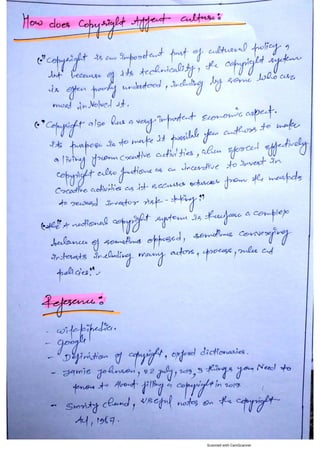 How does Copyright Affect Culture:
(*"Copyright is an important part of cultural policy,
but because of its technicality, the copyright system
is often poorly understood, including by some who are
most involved it.
(*"Copyright also has a very important Economic aspect.
Its purpose is to make it possible for authors to make
a living from creative activities, when enforced effectively
Copyright also functions as an incentive to invest in
Creative activities as it secures returns from the markets
to reward investor risk-taking."
A national copyright system is therefore a complex
balance of sometimes opposed, sometimes converging
interests including many actors, process, rules and
policies".
Reference:
- wikipedia.
- google
- Definition of copyright, oxford dictionaries.
- Jamie Johnson, 22 July, 2019, 5 things you Need to
know to About filling a copyright in 2019.
- Smrity chand, Useful notes on the copyright
Act, 1957.
Scanned with CamScanner